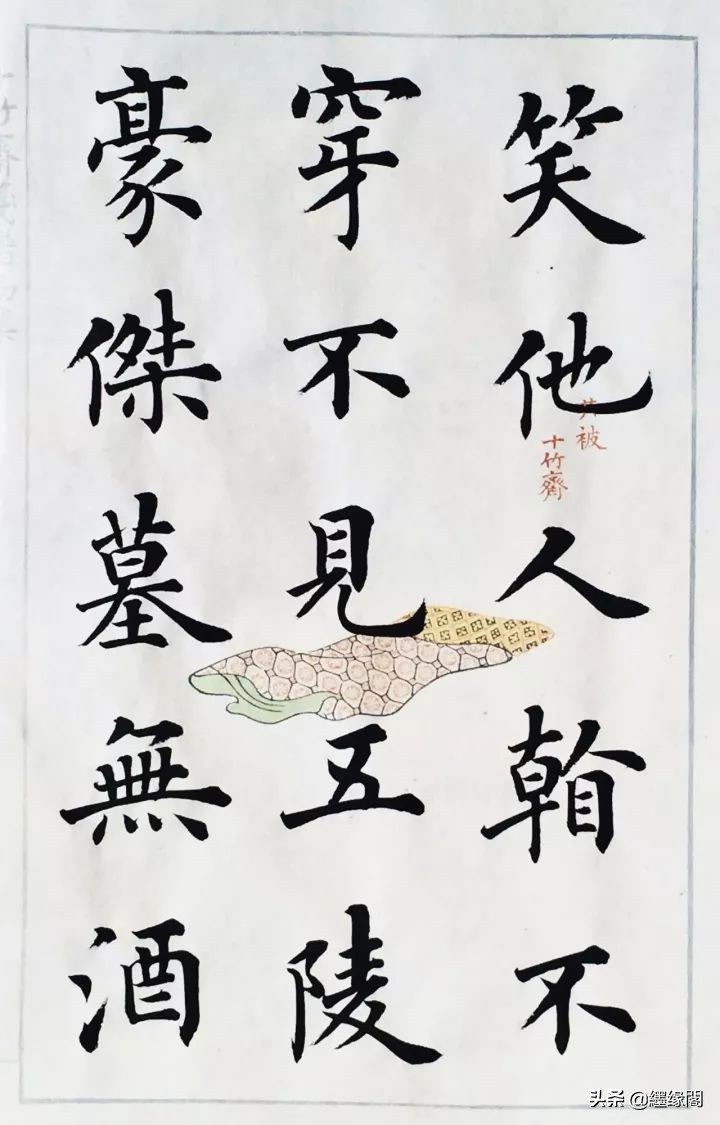 笑他人看不
穿不見五陵
豪傑墓無酒
共被
十竹齋
十竹齋箋譜
头条 @纒缘閣